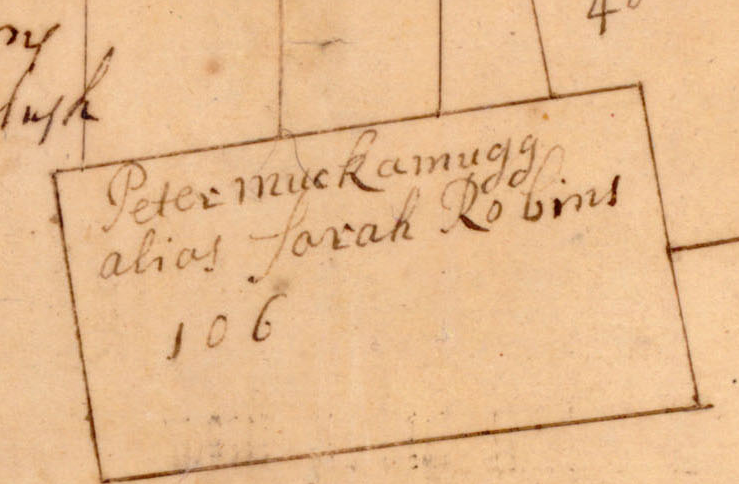 Peter muckamugg
alias Sarah Robins
106